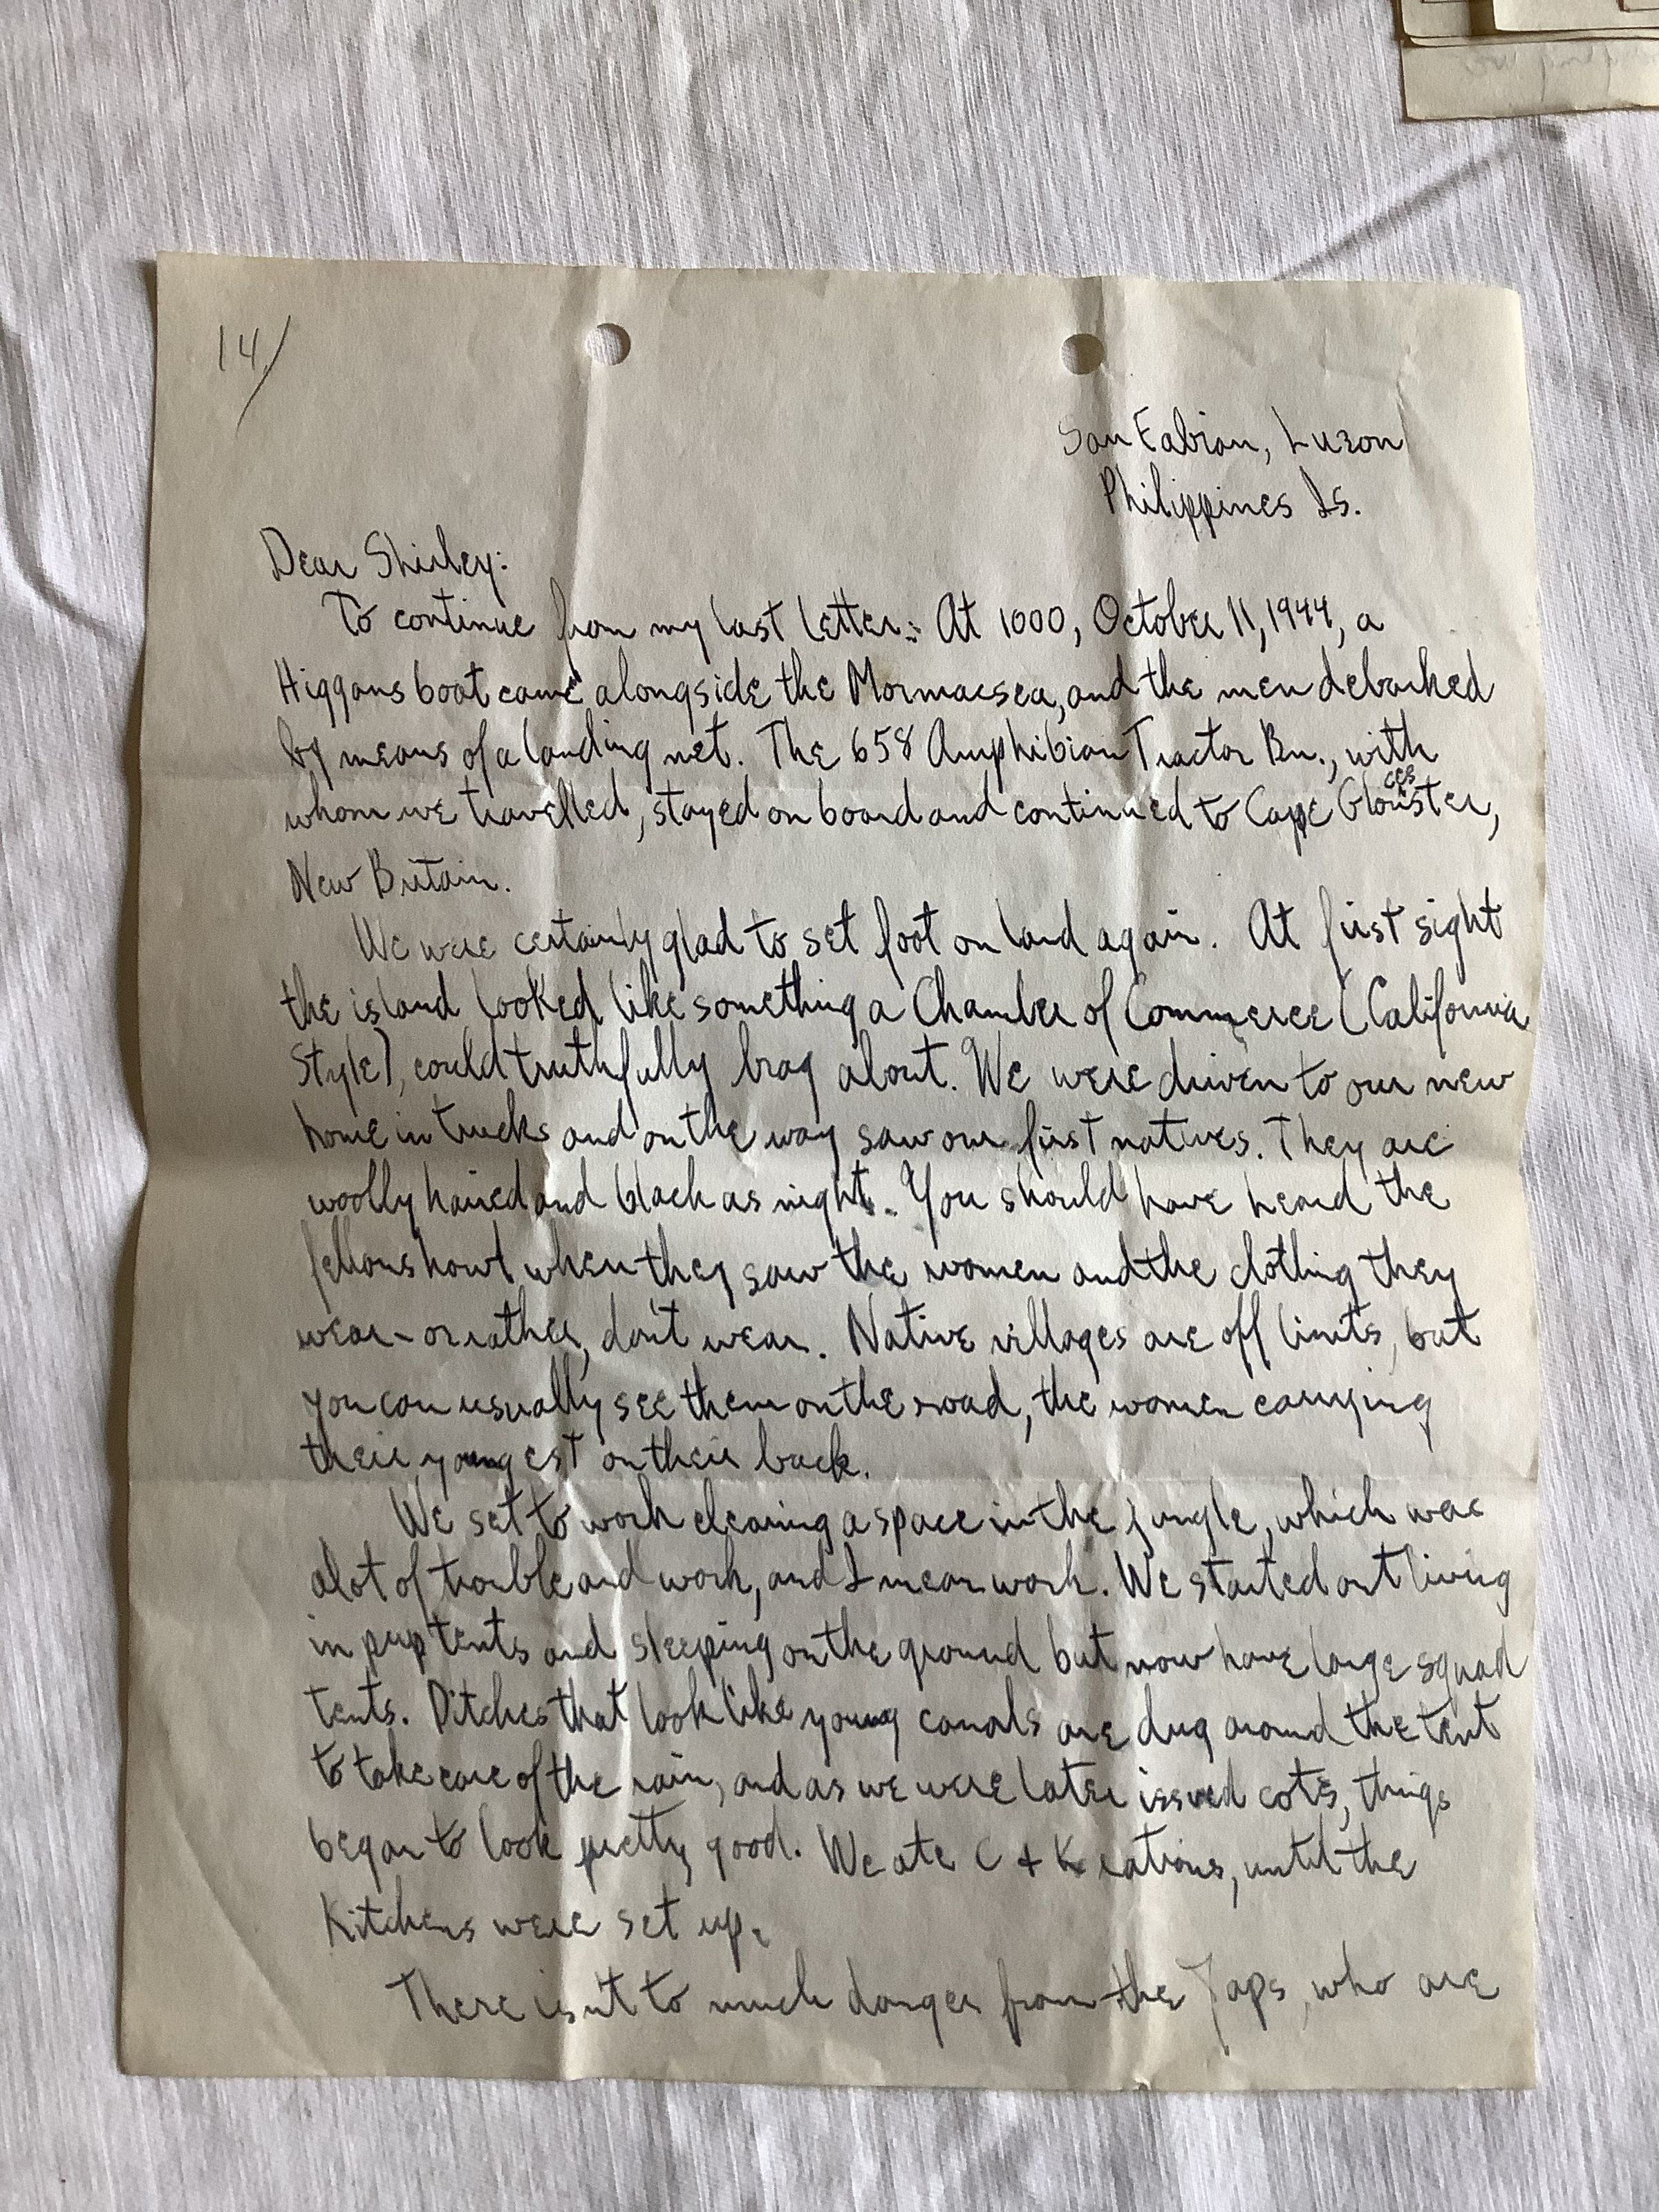 14/
San Fabian, Luzon
Philippines Is.
Dear Shirley:
To continue from my last letter: At 1000, October 11, 1944, a
Higgans boat came alongside the Mormacsea, and the men debarked
by means of a landing net. The 658 Amphibian Tractor Bn., with
whom we travelled, stayed on board and continued to Cape Glouscester,
New Britain.
We were certainly glad to set foot on land again. At first sight
the island looked like something a Chamber of Commerce (California
Style), could truthfully brag about. We were driven to our new
home in trucks and on the way saw our first natives. They are
woolly haired and black as night. You should have heard the
fellows howl when they saw the women and the clothing they
wear - or rather, don't wear. Native villages are off limits, but
you can usually see them on the road, the women carrying
their youngest on their back.
We set to work clearing a space in the jungle, which was
alot of trouble and work, and I mean work. We started out living
in pup tents and sleeping on the ground but now have large squad
tents. Ditches that look like young canals are dug around the tent
to take care of the rain, and as we were later issued cots, things
began to look pretty good. We ate C + K rations, until the
Kitchens were set up.
There isn't to much danger from the Japs, who are